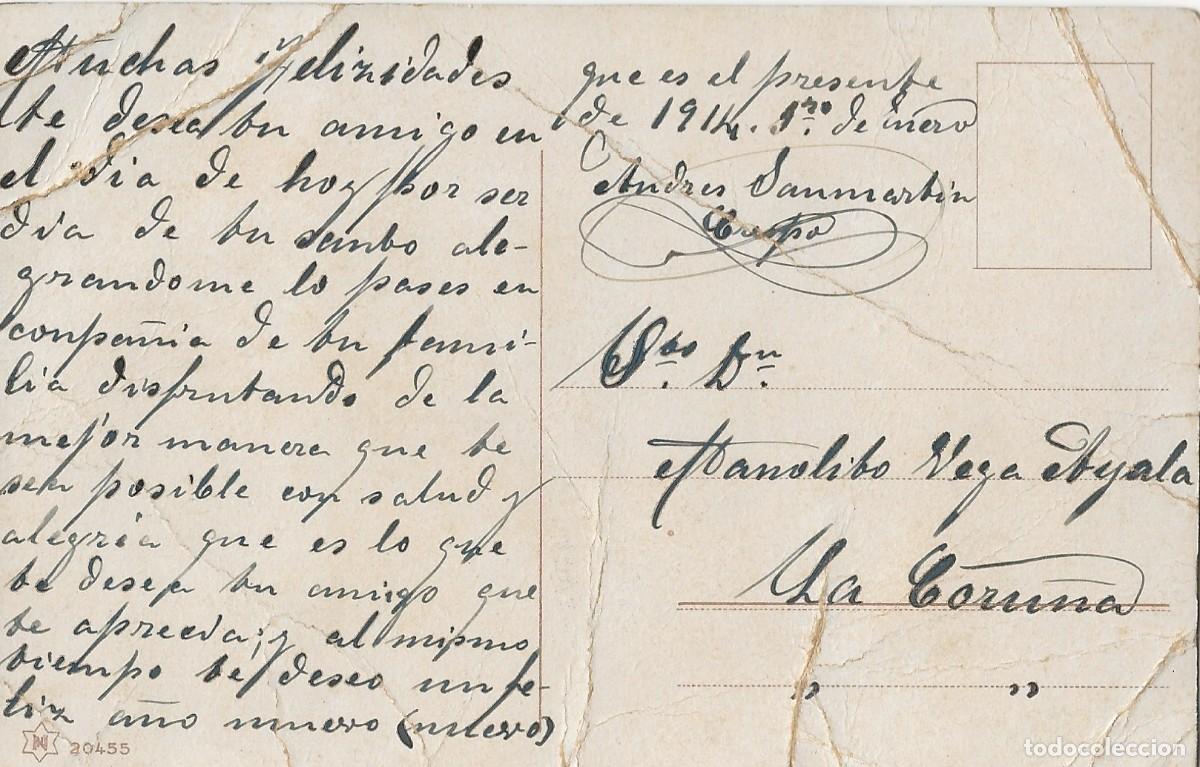 Muchas Felizidades
te desea tu amigo en
el dia de hoy por ser
dia de tu santo ale-
grandome lo pases en
conpañia de tu fami-
lia disfrutando de la
mejor manera que te
sea posible con salud y
alegria que es lo que
te desea tu amigo que
te aprecia; y al mismo
tiempo te deseo un fe-
liz año nuevo (nuevo)
que es el presente
de 1914. 1ro. de enero
Andres Sanmartin
Crespo
Sto. Dn.
Manolito Vega Ayala
La Coruña
" "
N
20455
todocoleccion